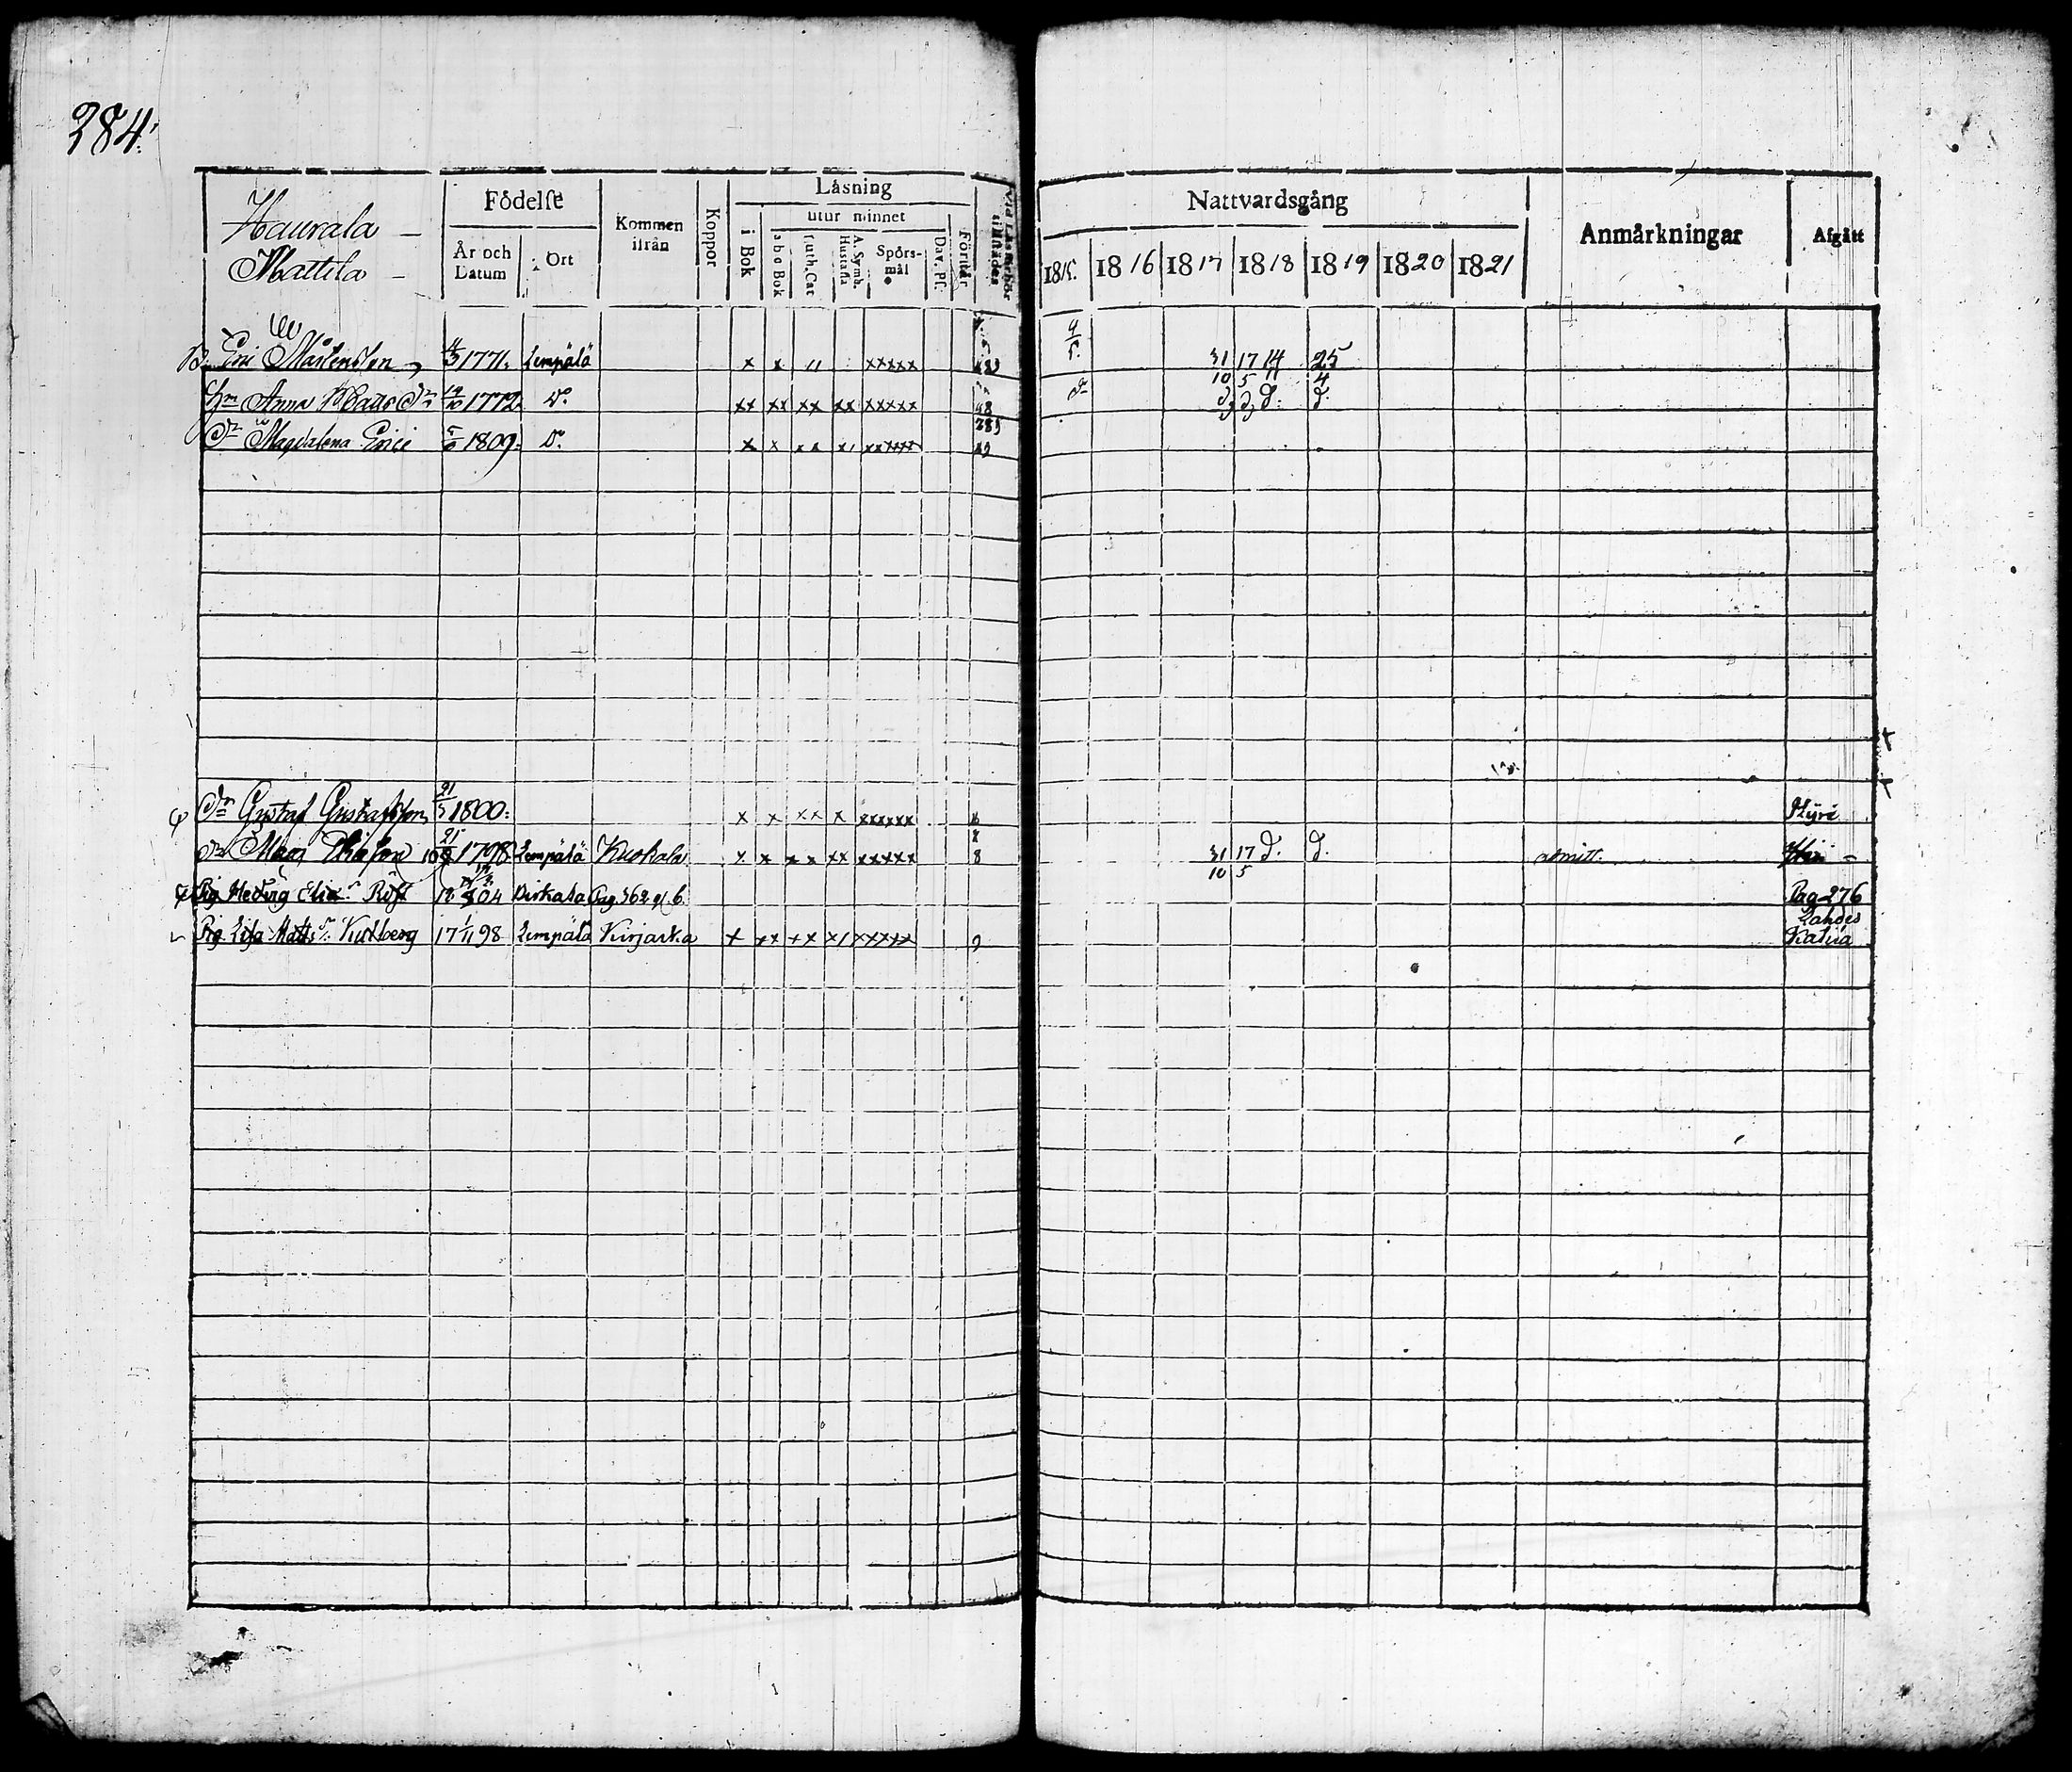 284.
Haurala
Mattila
Födelse
År och Datum
Ort
Kommen ifrån
Koppor
Läsning
i Bok
utur minnet
a b c Bok
Luth. Cat
A. Symb. Hustafla
Spörsmål
Dav. Ps.
Förstår
Nattvardsgång
1815. 1816 1817 1818 1819 1820 1821
Anmärkningar
Afgått
B. Eric Mårtensson 1771. Lempälä x x 11 xxxxx 4/5. 31/10 17/5 14/11 25/4
Hn Anna Matts Dr 1772 Do xx xx xx xx xxxxx
Dr Magdalena Erici 1809. Do x x xx x1 xxxxx
Dr Gustaf Gustafsson 1800. x x xx x xxxxxx
Dr 1798 Lempälä Kuokala x x xx xx xxxxx 8 31/10 17/5 d. d. admitt.
Pig. Hedvig Eliæ Dr 04 Birkala Pag. 362 Pag 276
Pig. Lisa Matts Dr Kullberg 17 1/11 98 Lempälä Kirjaska x xx xx x/ xxxxx 9 Lahdes Katila